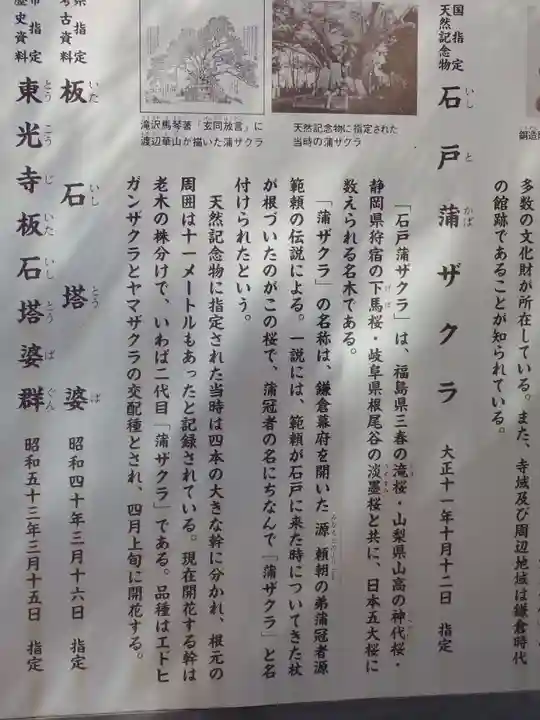 多数の文化財が所在している。また、寺域及び周辺地域は鎌倉時代
の館跡であることが知られている。
国指定
天然記念物
石戸蒲ザクラ
いし と かば
大正十一年十月十二日 指定
天然記念物に指定された
当時の蒲ザクラ
滝沢馬琴著「玄同放言」に
渡辺華山が描いた蒲ザクラ
「石戸蒲ザクラ」は、福島県三春の滝桜・山梨県山高の神代桜・
静岡県狩宿の下馬桜・岐阜県根尾谷の淡墨桜と共に、日本五大桜に
数えられる名木である。
「蒲ザクラ」の名称は、鎌倉幕府を開いた源頼朝の弟蒲冠者源
範頼の伝説による。一説には、範頼が石戸に来た時についてきた杖
が根づいたのがこの桜で、蒲冠者の名にちなんで「蒲ザクラ」と名
付けられたという。
天然記念物に指定された当時は四本の大きな幹に分かれ、根元の
周囲は十一メートルもあったと記録されている。現在開花する幹は
老木の株分けで、いわば二代目「蒲ザクラ」である。品種はエドヒ
ガンザクラとヤマザクラの交配種とされ、四月上旬に開花する。
県指定
考古資料
板石塔婆
いた いし とう ば
昭和四十年三月十六日 指定
市指定
歴史資料
東光寺板石塔婆群
とう こう じ いた いし とう ば ぐん
昭和五十三年三月十五日 指定